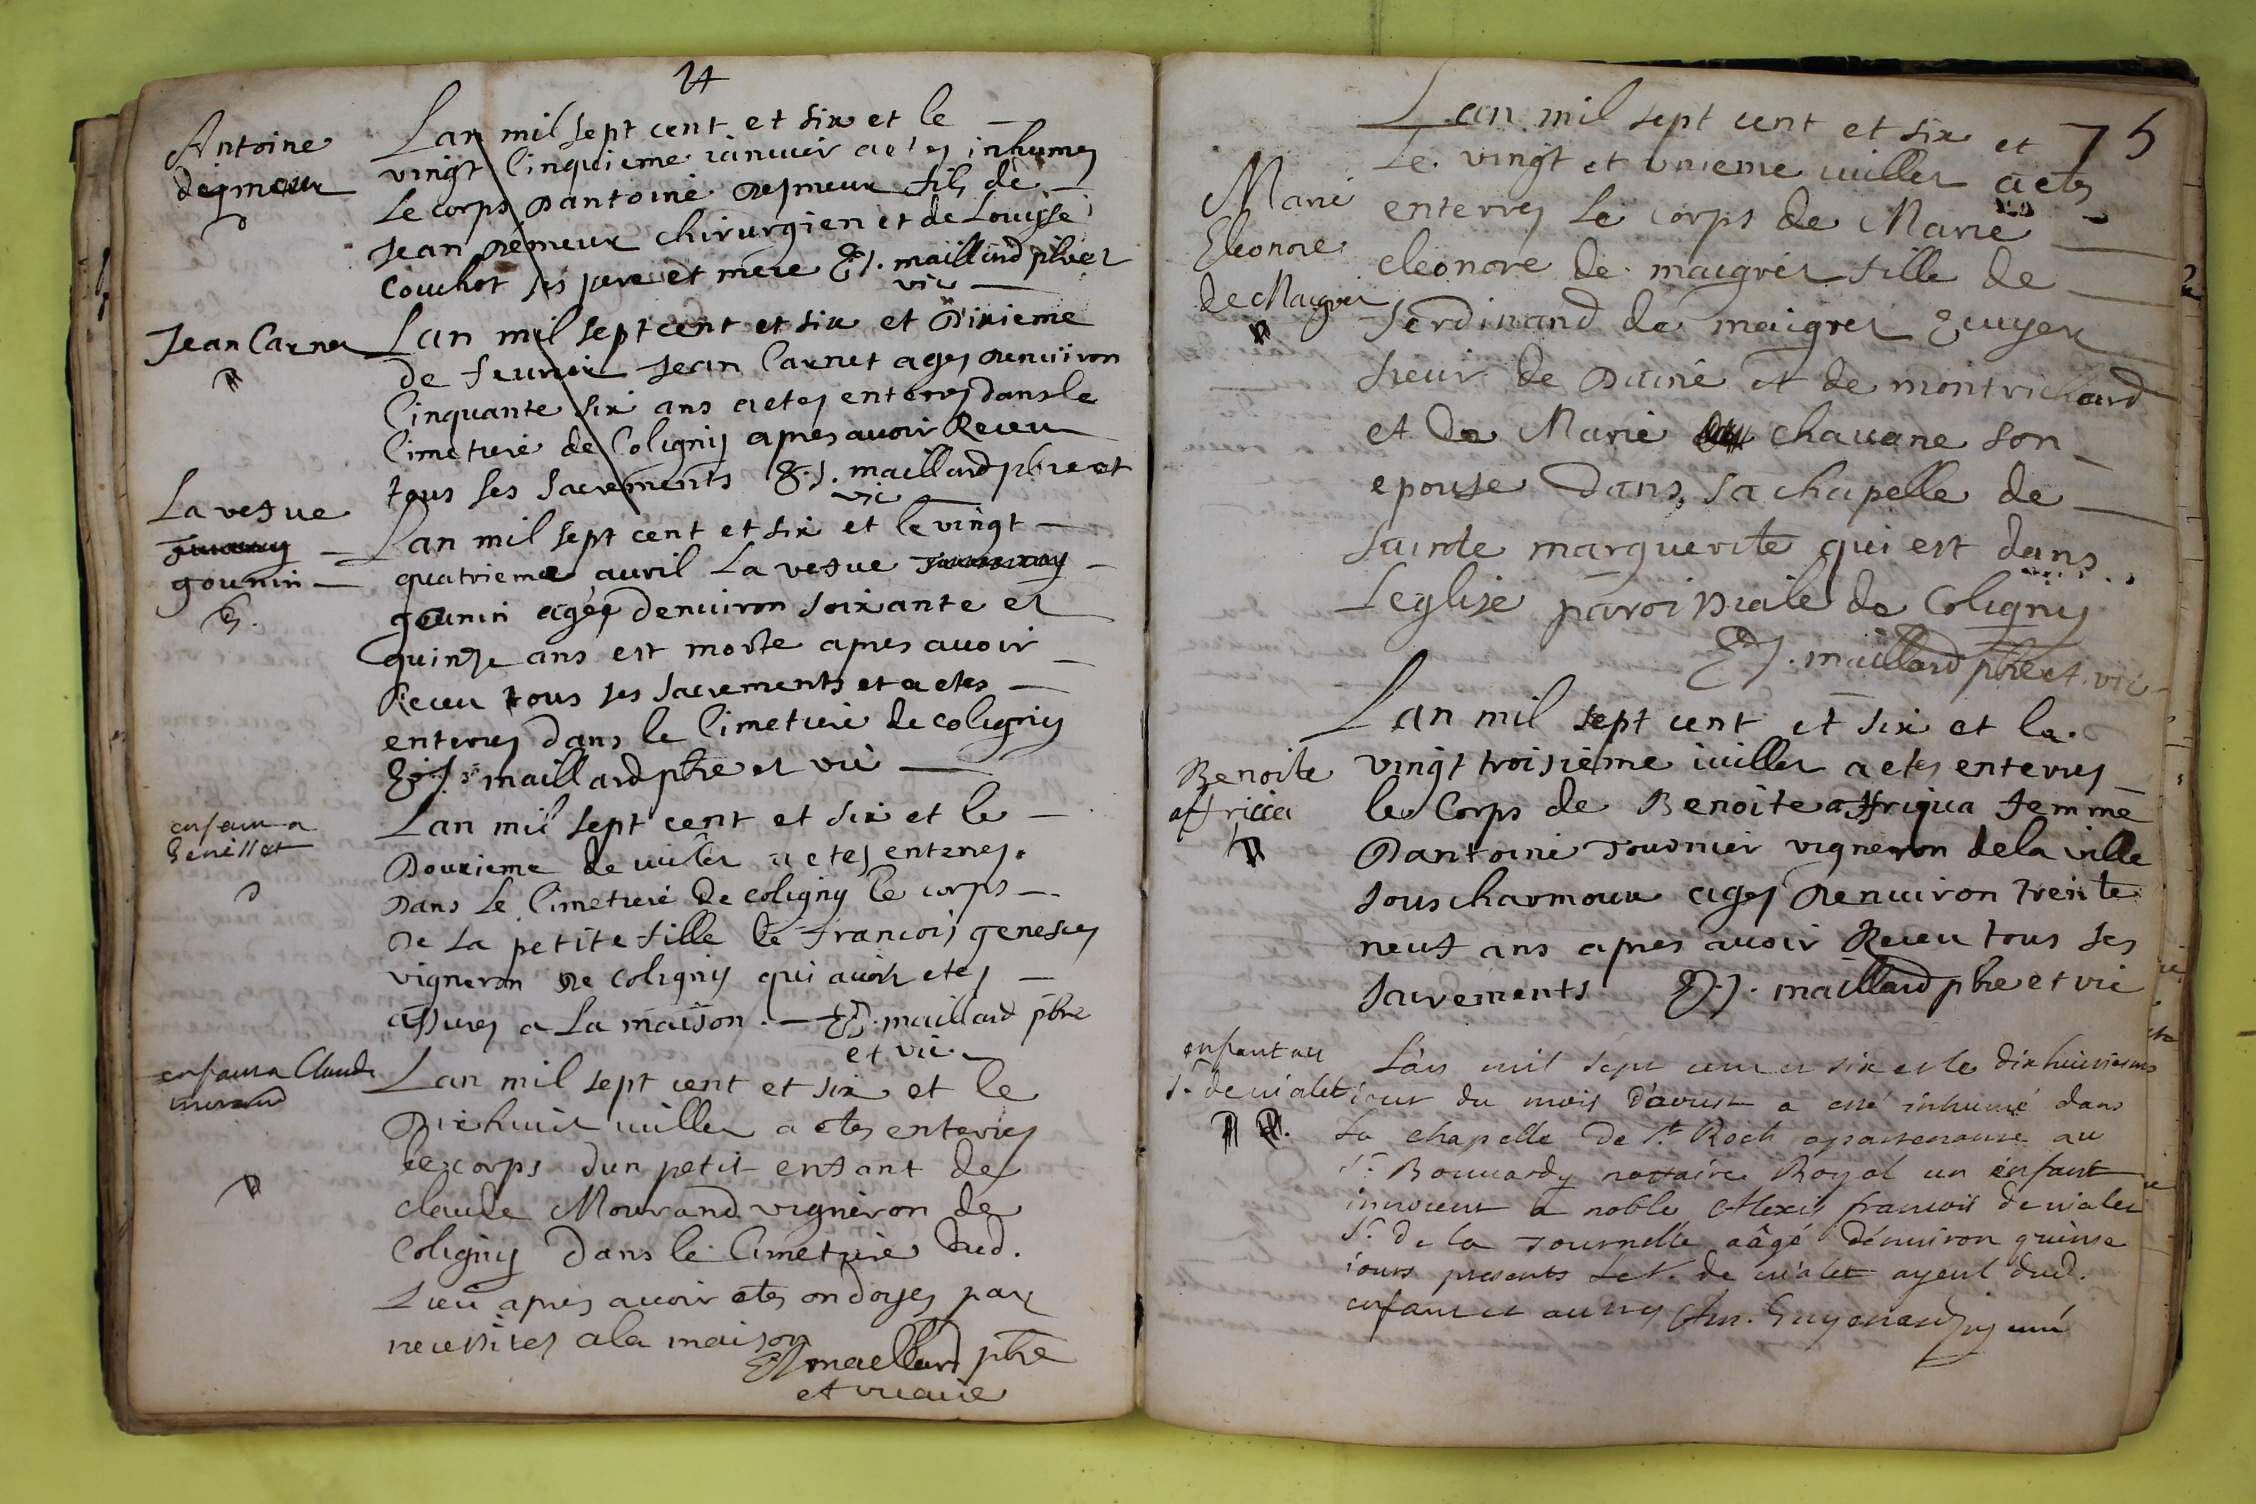 Antoine
desmeur
Lan mil sept cent et six et le
vingt Cinquieme ianuier a etes inhumes
Le corps Dantoine Desmeur fils de
Jean Demeur chirurgien et de Louisse
Couchot ses pere et mere E.J. maillard pbre et
vic
Jean Carnet
Lan mil sept cent et six et Dixieme
de feurier Jean Carnet ages Denuiron
Cinquante six ans a etes enteres dans le
Cimetiere de Coligny apres auoir Receu
tous ses sacrements E.J. maillard pbre et
vic
La vefue
gounin
Lan mil sept cent et six et le vingt
quatrieme auril La vefue
gounin agée denuiron soixante et
quinze ans est morte apres auoir
Receu tous ses sacrements et a etes
enterres dans le Cimetiere de coligny
E.J. maillard pbre et vic
enfant a
Lan mil sept cent et six et le
Douxieme de iuillet a etes enterres
Dans Le Cimetiere De coligny le corps
De La petite fille de francois
vigneron De coligny qui auoit etes
a La maison. E.J. maillard pbre
et vic.
enfant a Claude
mourand
Lan mil sept cent et six et le
Dixhuit iuillet a etes enterres
le corps dun petit enfant de
claude Mourand vigneron de
Coligny Dans le Cimetiere dud.
Lieu apres auoir etes ondoyes par
necessites a la maison
E.J. maillard pbre
et vicaire
75
Marie
Eleonore
de Maigret
Lan mil sept cent et six et
Le vingt et unieme iuillet a etes
enterres Le corps de Marie
eleonore de maigret fille de
ferdinand de maigret Ecuyer
sieur de et de montrichard
et de Marie chauane son
epouse Dans sa chapelle de
sainte marguerite qui est dans
Leglise paroissiale de Coligny
E.J. maillard pbre et vic
Benoite
affrica
Lan mil sept cent et six et le
vingt troisieme iuillet a etes enterres
le Corps de Benoite affriqua femme
Dantoine vigneron de la ville
sous charmoux ages Denuiron trente
neuf ans apres auoir Receu tous ses
sacrements E.J. maillard pbre et vic
enfant au
Sr. de uialet
L'an mil sept cent et six et le dixhuitieme
iour du mois d'aoust a esté inhumé dans
La chapelle de St. Roch appartenante au
Sr. Bouuardy notaire Royal un enfant
innocent a noble Alexis francois de uialet
Sr. de la Tournelle aâgé d'enuiron quinse
iours presents Le Sr. de uialet ayeul dud.
enfant et autres